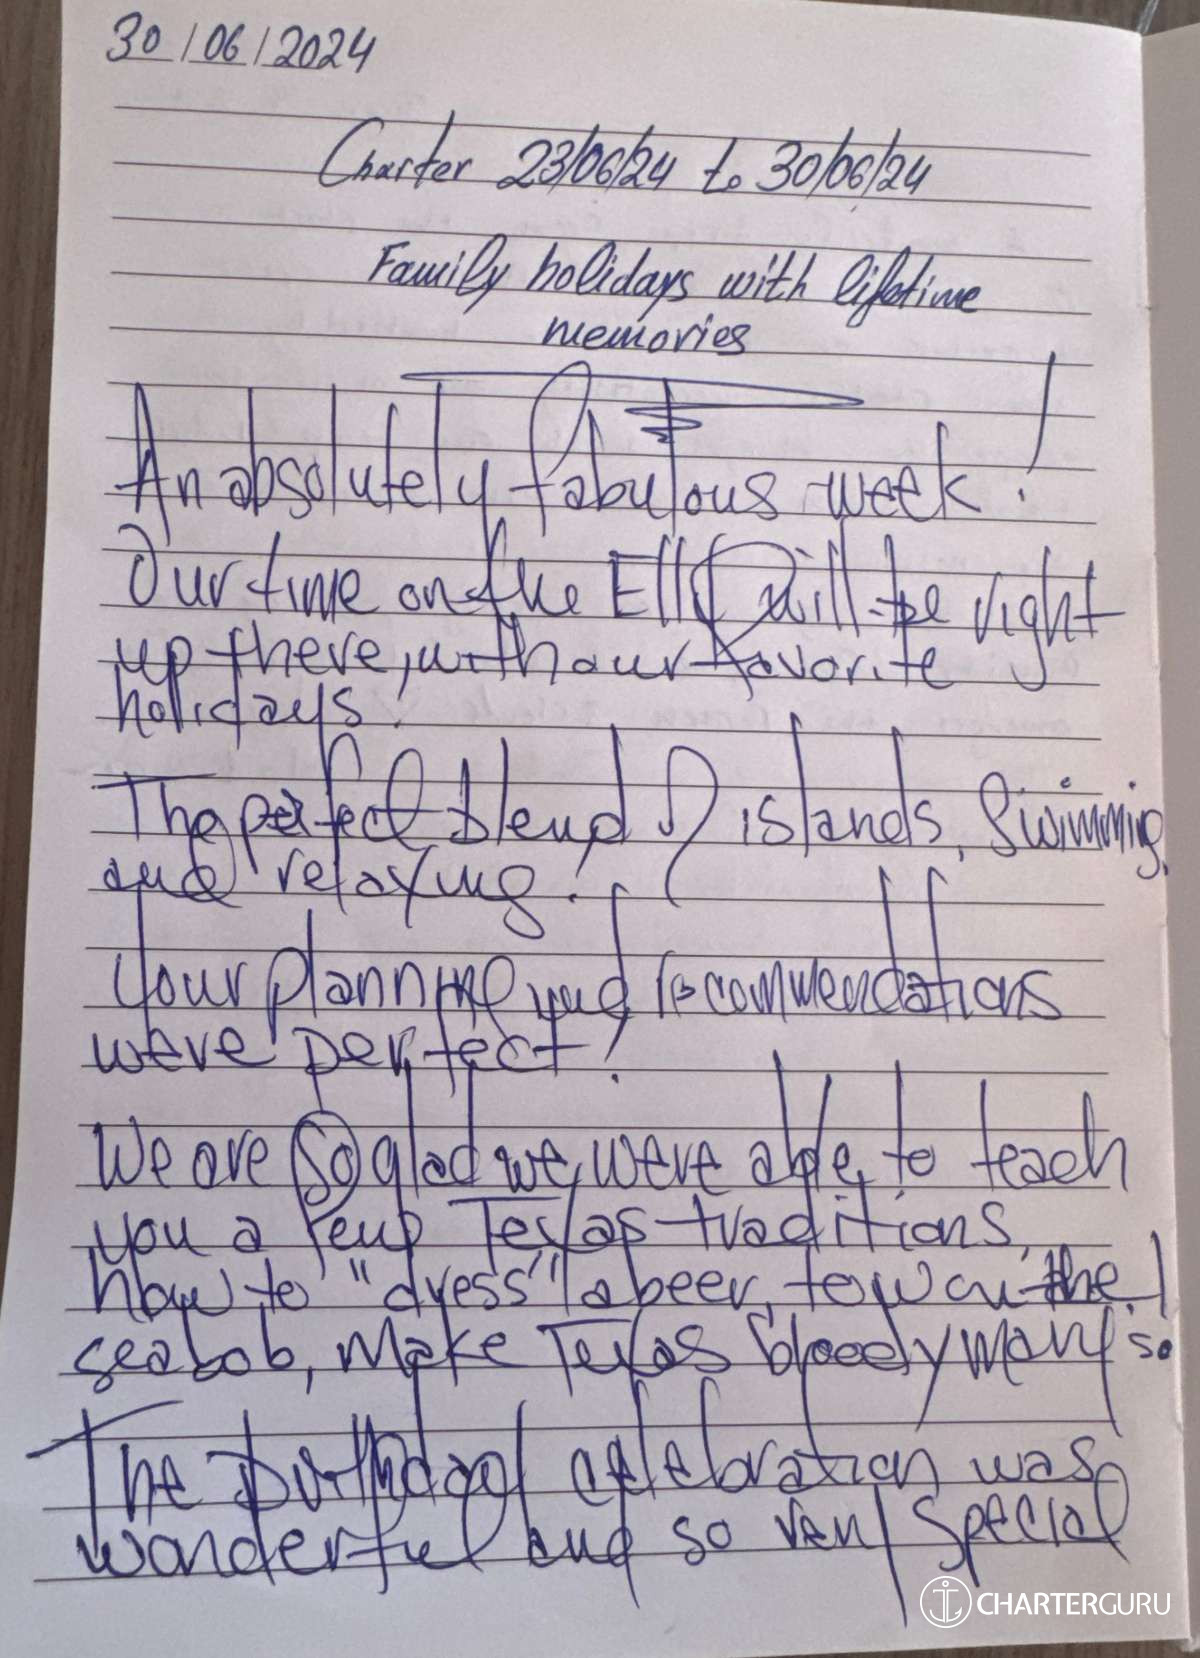 30/06/2024
Charter 23/06/24 to 30/06/24
Family holidays with lifetime
memories
An absolutely fabulous week!
Our time on the Elly will be right
up there, with our favorite
holidays.
The perfect blend of islands, Swimming,
and relaxing!
Your planning and recommendations
were perfect!
We are so glad we were able to teach
you a few Texas traditions,
how to "dress" a beer, tow on the
seabob, make Texas bloody mary's
The Birthday celebration was
wonderful and so very special
CHARTERGURU